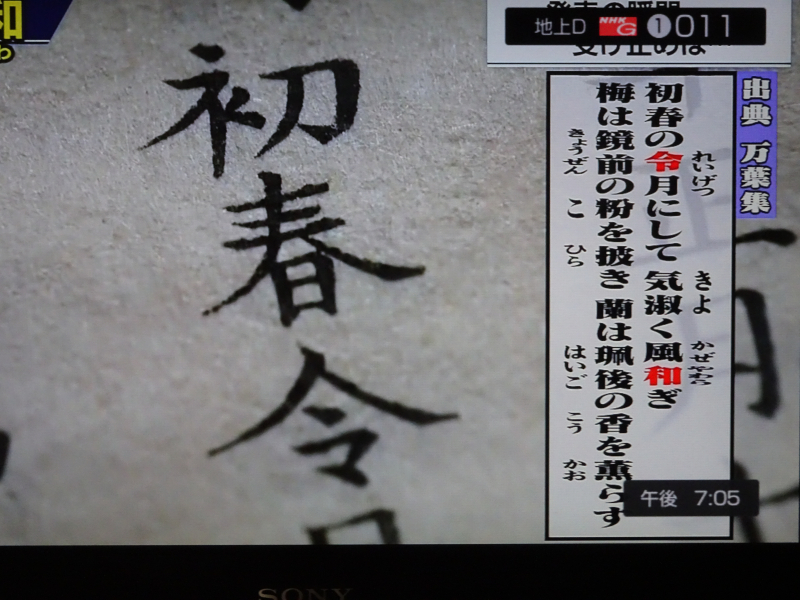 和
わ
地上D NHK G 1 011
出典 万葉集
初春の令月にして 気淑く風和ぎ
れいげつ きよ かぜやわら
梅は鏡前の粉を披き 蘭は珮後の香を薫らす
きょうぜん こ ひら はいご こう かお
初春令月
午後 7:05
SONY